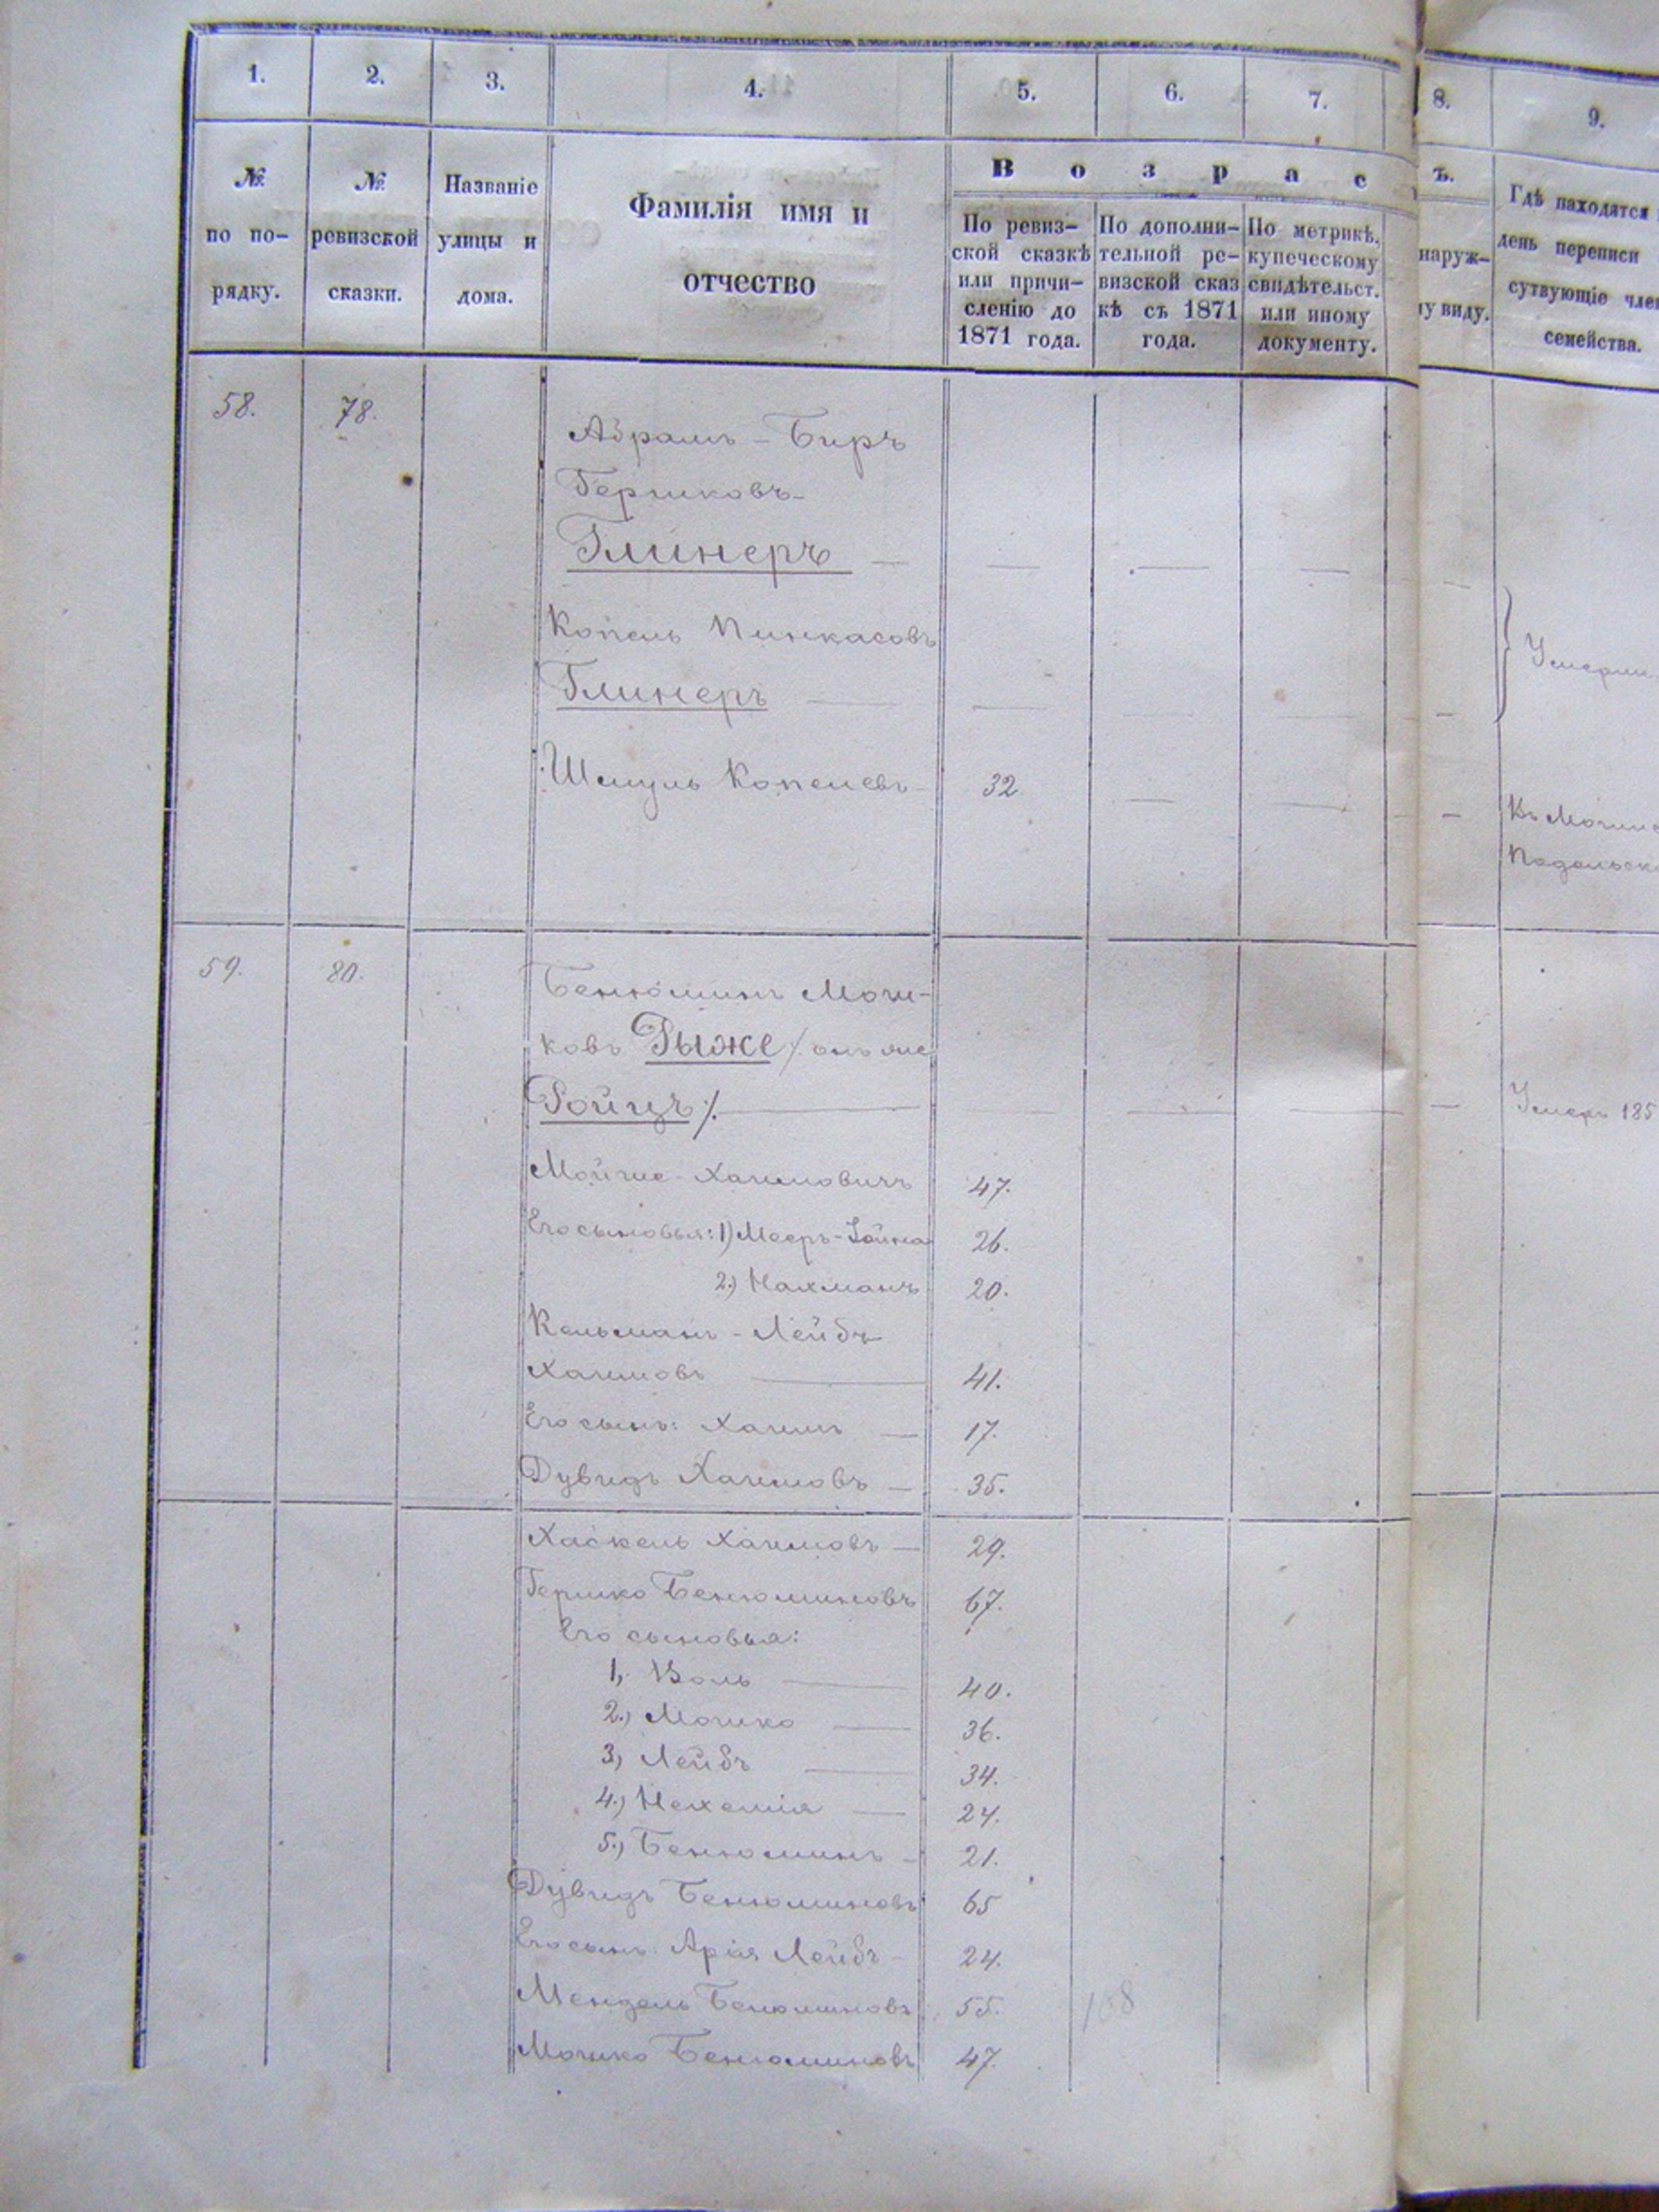 1.
2.
3.
4.
5.
6.
7.
8.
9.
№ по по-
рядку.
№ ревизской
сказки.
Названіе
улицы и
дома.
Фамилія имя и
отчество
В о з р а с
ъ.
По ревиз-
ской сказкѣ
или причи-
сленію до
1871 года.
По дополни-
тельной ре-
визской сказ
кѣ съ 1871
года.
По метрикѣ,
купеческому
свидѣтельст.
или иному
документу.
наруж-
у виду.
Гдѣ находятся
день переписи
сутвующіе чле
семейства.
58. 78. Абрамъ - Беръ
Гершковъ-
Глинеръ — — — — —
Копель Пинкасовъ
Умерли
Глинеръ — — — — —
Шмуль Копелевъ 32 — — —
Подольск
59. 80. Бенюминъ Мош-
ковъ Рыже /. онъ же
Ройцъ /. — — — — Умеръ 185
Мойше Хаимовичъ 47.
Его сыновья: 1) Мееръ-Іойна 26.
2.) Нахманъ 20.
Кельманъ - Лейбъ
Хаимовъ — 41.
Его сынъ: Хаимъ — 17.
Дувидъ Хаимовъ — 35.
Хаскель Хаимовъ — 29.
Гершко Бенюминовъ 67.
Его сыновья:
1, Воль — 40.
2.) Мошко — 36.
3, Лейбъ — 34.
4.) Нехемія — 24.
5.) Бенюминъ — 21.
Дувидъ Бенюминовъ 65
Его сынъ Арія Лейбъ - 24.
Мендель Бенюминовъ 55. 108
Мошко Бенюминовъ 47.